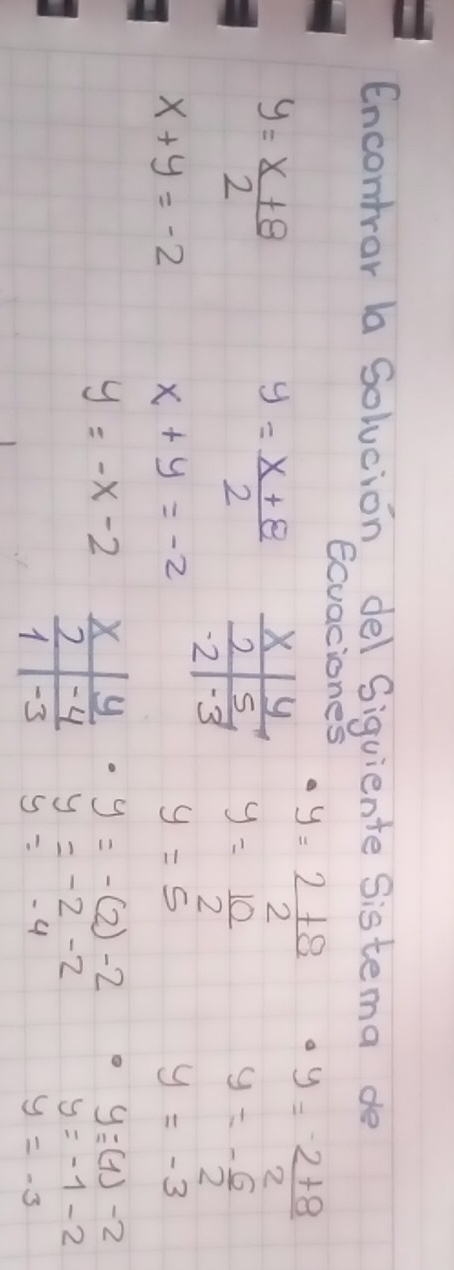 Encontrar la Solución del Siguiente Sistema de
Ecuaciones
y = x+8/2
x + y = -2
y = x+8/2
x + y = -2
y = -x -2
x | y
2 | 5
-2 | -3
x | y
2 | -4
1 | -3
• y = 2+8/2
y = 10/2
y = 5
• y = -2+8/2
y = -6/2
y = -3
• y = -(2) -2
y = -2 -2
y = -4
• y = (1) -2
y = -1 -2
y = -3